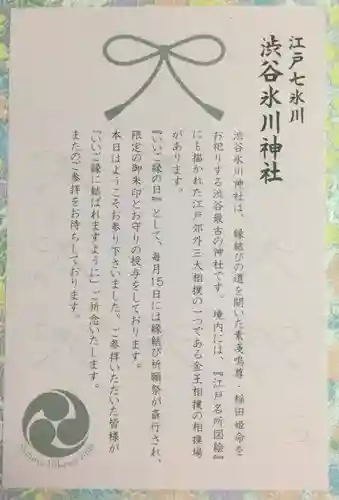 江戸七氷川
渋谷氷川神社
渋谷氷川神社は、縁結びの道を開いた素戔鳴尊・稲田姫命を
お祀りする渋谷最古の神社です。境内には、『江戸名所図絵』
にも描かれた江戸郊外三大相撲の一つである金王相撲の相撲場
があります。
『いいご縁の日』として、毎月15日には縁結び祈願祭が斎行され、
限定の御朱印とお守りの授与をしております。
本日はようこそお参り下さいました。ご参拝いただいた皆様が
「いいご縁に結ばれますように」ご祈念いたします。
またのご参拝をお待ちしております。